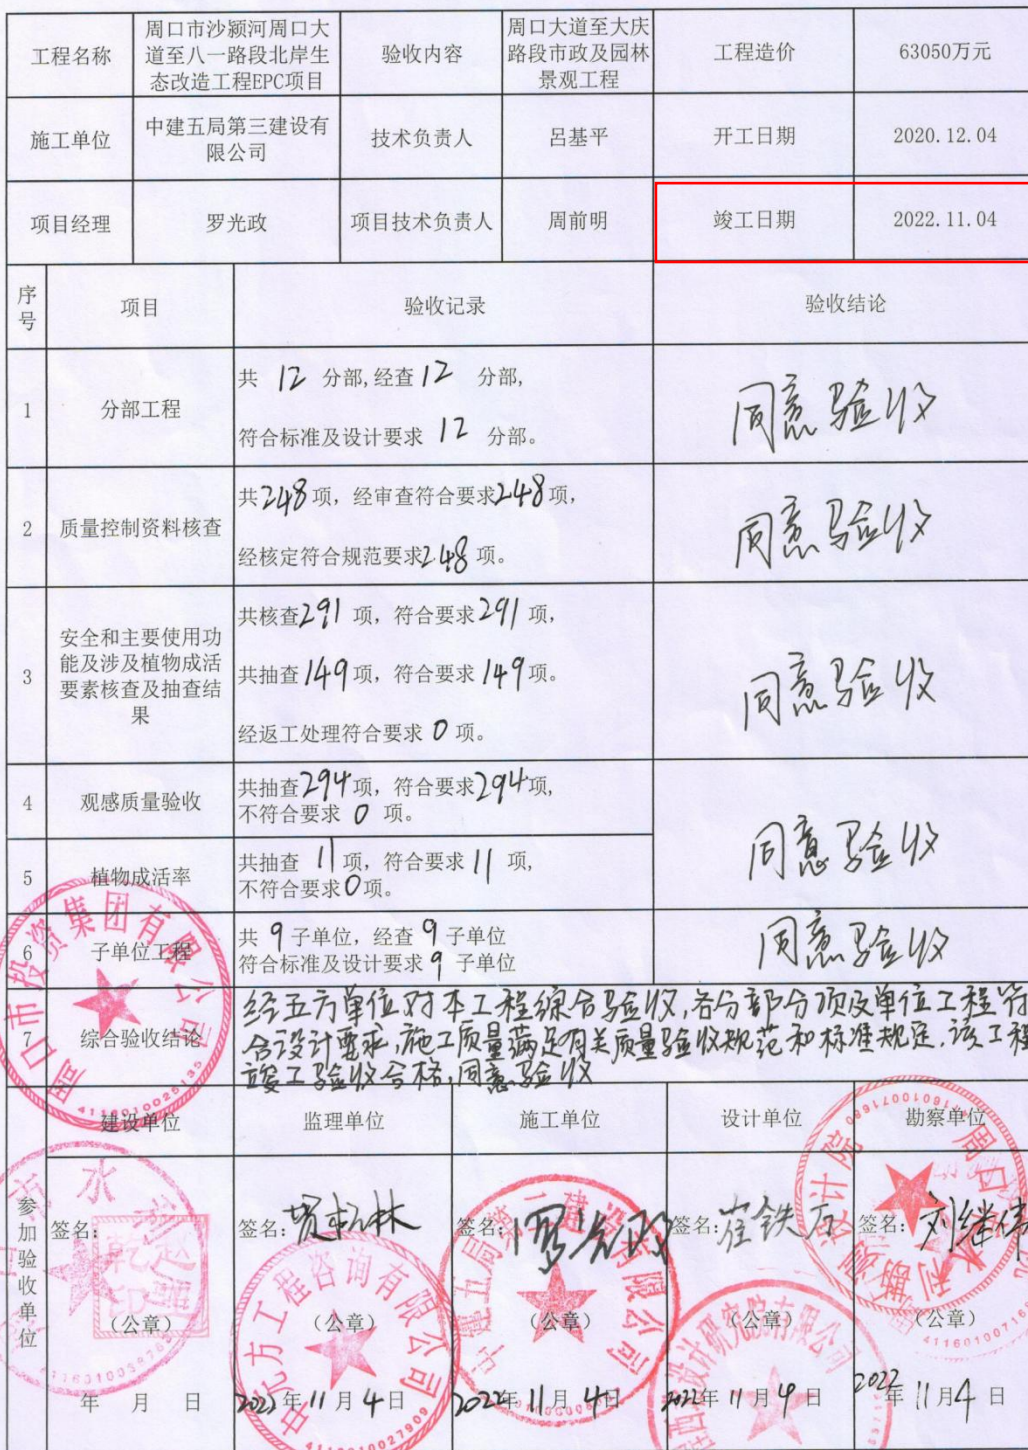 工程名称
周口市沙颍河周口大
道至八一路段北岸生
态改造工程EPC项目
验收内容
周口大道至大庆
路段市政及园林
景观工程
工程造价
63050万元
施工单位
中建五局第三建设有
限公司
技术负责人
吕基平
开工日期
2020.12.04
项目经理
罗光政
项目技术负责人
周前明
竣工日期
2022.11.04
序号
项目
验收记录
验收结论
1
分部工程
共 12 分部,经查12 分部,
符合标准及设计要求 12 分部。
同意验收
2
质量控制资料核查
共248项,经审查符合要求248项,
经核定符合规范要求248项。
同意验收
3
安全和主要使用功
能及涉及植物成活
要素核查及抽查结
果
共核查291项,符合要求291项,
共抽查149项,符合要求149项。
经返工处理符合要求0项。
同意验收
4
观感质量验收
共抽查294项,符合要求294项,
不符合要求 0 项。
同意验收
5
植物成活率
共抽查 11项,符合要求11 项,
不符合要求0项。
6
子单位工程
共 9子单位,经查 9子单位
符合标准及设计要求9 子单位
同意验收
7
综合验收结论
经五方单位对本工程综合验收,各分部分项及单位工程符
合设计要求,施工质量满足有关质量验收规范和标准规定,该工程
竣工验收合格,同意验收
参加验收单位
建设单位
监理单位
施工单位
设计单位
勘察单位
签名:
签名:
签名:罗光政
签名:崔铁万
签名:刘继伟
(公章)
(公章)
(公章)
(公章)
(公章)
年 月 日
2022年11月4日
2022年11月4日
2022年11月4日
2022年11月4日
周口市投资集团有限公司
4116010025135
工程咨询有限公司
4116010027909